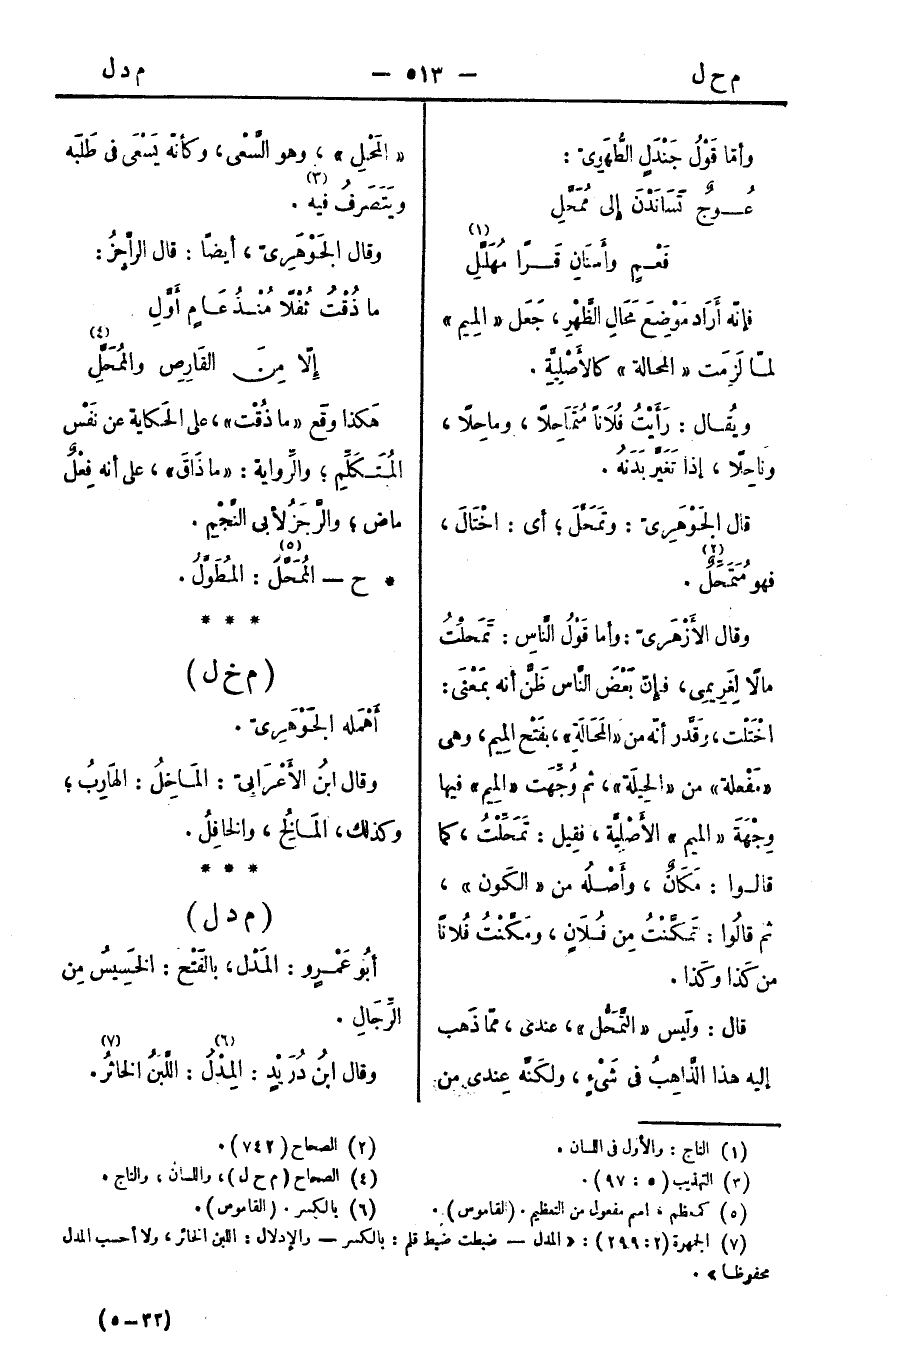 م ح ل
— ٥١٣ —
م د ل
وأمّا قَوْلُ جَنْدَلٍ الطُّهَوِىّ :
عُــوجٌ تَسَانَدْنَ إلى مُمَحَّلِ
فَعْــمٍ وأَسنَانِ قَــرًا مُهَلَّلِ (١)
فإنّه أَرَاد مَوْضِعَ مَحَالِ الظَّهْرِ ، جَعَل « المِيم »
لمّا لَزِمَت « المحالة » كالأَصْلِيَّةِ .
ويُقَـال : رَأَيْتُ فُلَانًا مُتَمَاحِلًا ، وماحِلًا ،
وناحِلًا ، إذا تَغَيَّر بَدَنُه .
قال الجَوْهَرِىّ : وتَمَحَّلَ ؛ أى : احْتَالَ ،
فهو مُتَمَحِّلٌ (٢) .
وقال الأَزْهَرِىّ : وأما قَوْلُ النَّاسِ : تَمَحَّلْتُ
مالًا لِغَرِيمِى ، فإنّ بَعْضَ النَّاسِ ظَنَّ أنه بمَعْنَى :
احْتَلْت ، وقَدَّر أنّه من « المَحَالَةِ » ، بفَتْح المِيم ، وهى
« مَفْعلة » من « الحِيلَة » ، ثم وُجِّهَت « المِيم » فيها
وِجْهَةَ « المِيم » الأَصْلِيَّة ، فقِيل : تَمَحَّلْتُ ، كما
قالـوا : مَكَانٌ ، وأَصْـلُه من « الكَون » ،
ثم قالُوا : تَمَكَّنْتُ مِن فُـلَانٍ ، ومَكَّنْتُ فُلانًا
من كَذا وكَذا .
قال : ولَيس « التَّمَحُّل » ، عندى ، ممّا ذَهب
إليه هذا الذَّاهِبُ فى شَىْءٍ ، ولكنَّه عِندى من
« المَحْلِ » ، وهو السَّعْى ، وكأنّه يَسْعَى فى طَلَبه
ويَتَصَرفُ فيه (٣) .
وقال الجَوْهَرِىّ ، أيضًا : قال الرَّاجِزُ :
ما ذُقْتُ ثُفْلًا مُنْـذُ عَـامٍ أَوَّلِ
إلّا مِنَ القَارِصِ والمُمَحَّلِ (٤)
هَكذا وقَع « ما ذُقْت » ، على الحَكاية عن نَفْس
المُتَـكَلِّمِ ؛ والرِّواية : « ما ذَاقَ » ، على أنه فِعْلٌ
ماض ؛ والرَّجَزُ لأبى النَّجْمِ .
* ح — المُمَحَّلُ (٥) : المُطَوَّلُ .
* * *
(م خ ل)
أَهْمَله الجَوْهَرِىّ .
وقال ابنُ الأَعْرَابِىّ : المَـاخِلُ : الهَارِبُ ؛
وكذلك ، المَـالِخُ ، والخافِلُ .
* * *
(م د ل)
أبُو عَمْـرٍو : المَدْل ، بالفَتْح : الخَسِيسُ مِن
الرِّجَالِ .
وقال ابنُ دُرَيْدٍ : المِدْلُ (٦) : اللَّبَنُ الخاثرُ (٧) .
(١) التاج : والأول فى اللسان .
(٢) الصحاح (٧٤٢) .
(٣) التهذيب (٥ : ٩٧) .
(٤) الصحاح (م ح ل) ، واللسان ، والتاج .
(٥) كمعظم ، اسم مفعول من التعظيم . (القاموس) .
(٦) بالكسر . (القاموس) .
(٧) الجمهرة (٢ : ٢٩٩) : « المدل — ضبطت ضبط قلم : بالكسر — والإدلال : اللبن الخائر ، ولا أحسب المدل
محفوظا » .
(٣٣—٥)